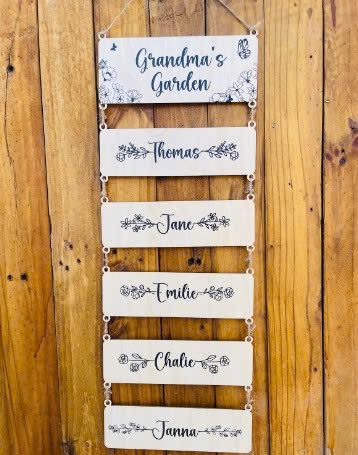 Grandma's
Garden
Thomas
Jane
Emilie
Chalie
Janna